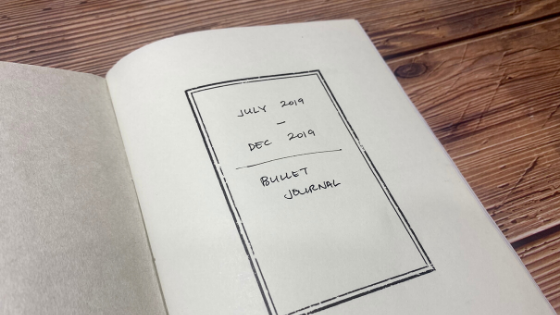 JULY 2019
–
DEC 2019
BULLET
JOURNAL